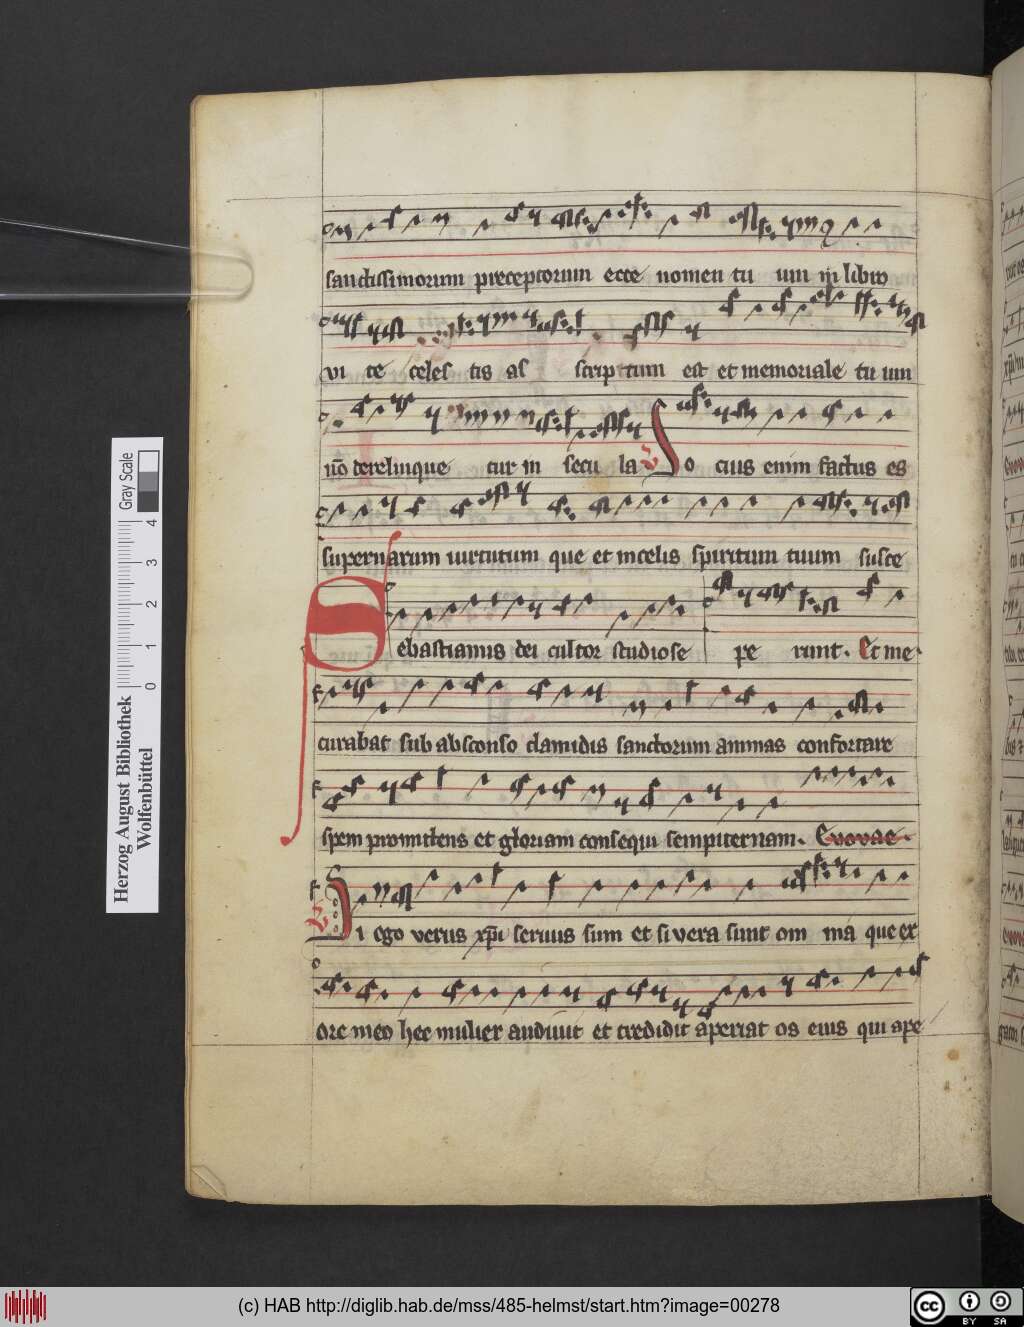 sanctissimorum preceptorum ecce nomen tu um in libro
vi te celes tis as scrip tum est et memoriale tu um
nō derelinque tur in secu la So cius enim factus es
supernarum uirtutum que et incelis spiritum tuum susce
Sebastianus dei cultor studiose pe runt. Et me
curabat sub absconso clamidis sanctorum animas confortare
spem promittens et gloriam consequi sempiternam. Euouae.
Si ego verus xpi seruus sum et si vera sunt om nia que ex
ore meo hec mulier audiuit et credidit aperiat os eius qui ape
Herzog August Bibliothek
Wolfenbüttel
0 1 2 3 4
Gray Scale
(c) HAB http://diglib.hab.de/mss/485-helmst/start.htm?image=00278
cc BY SA